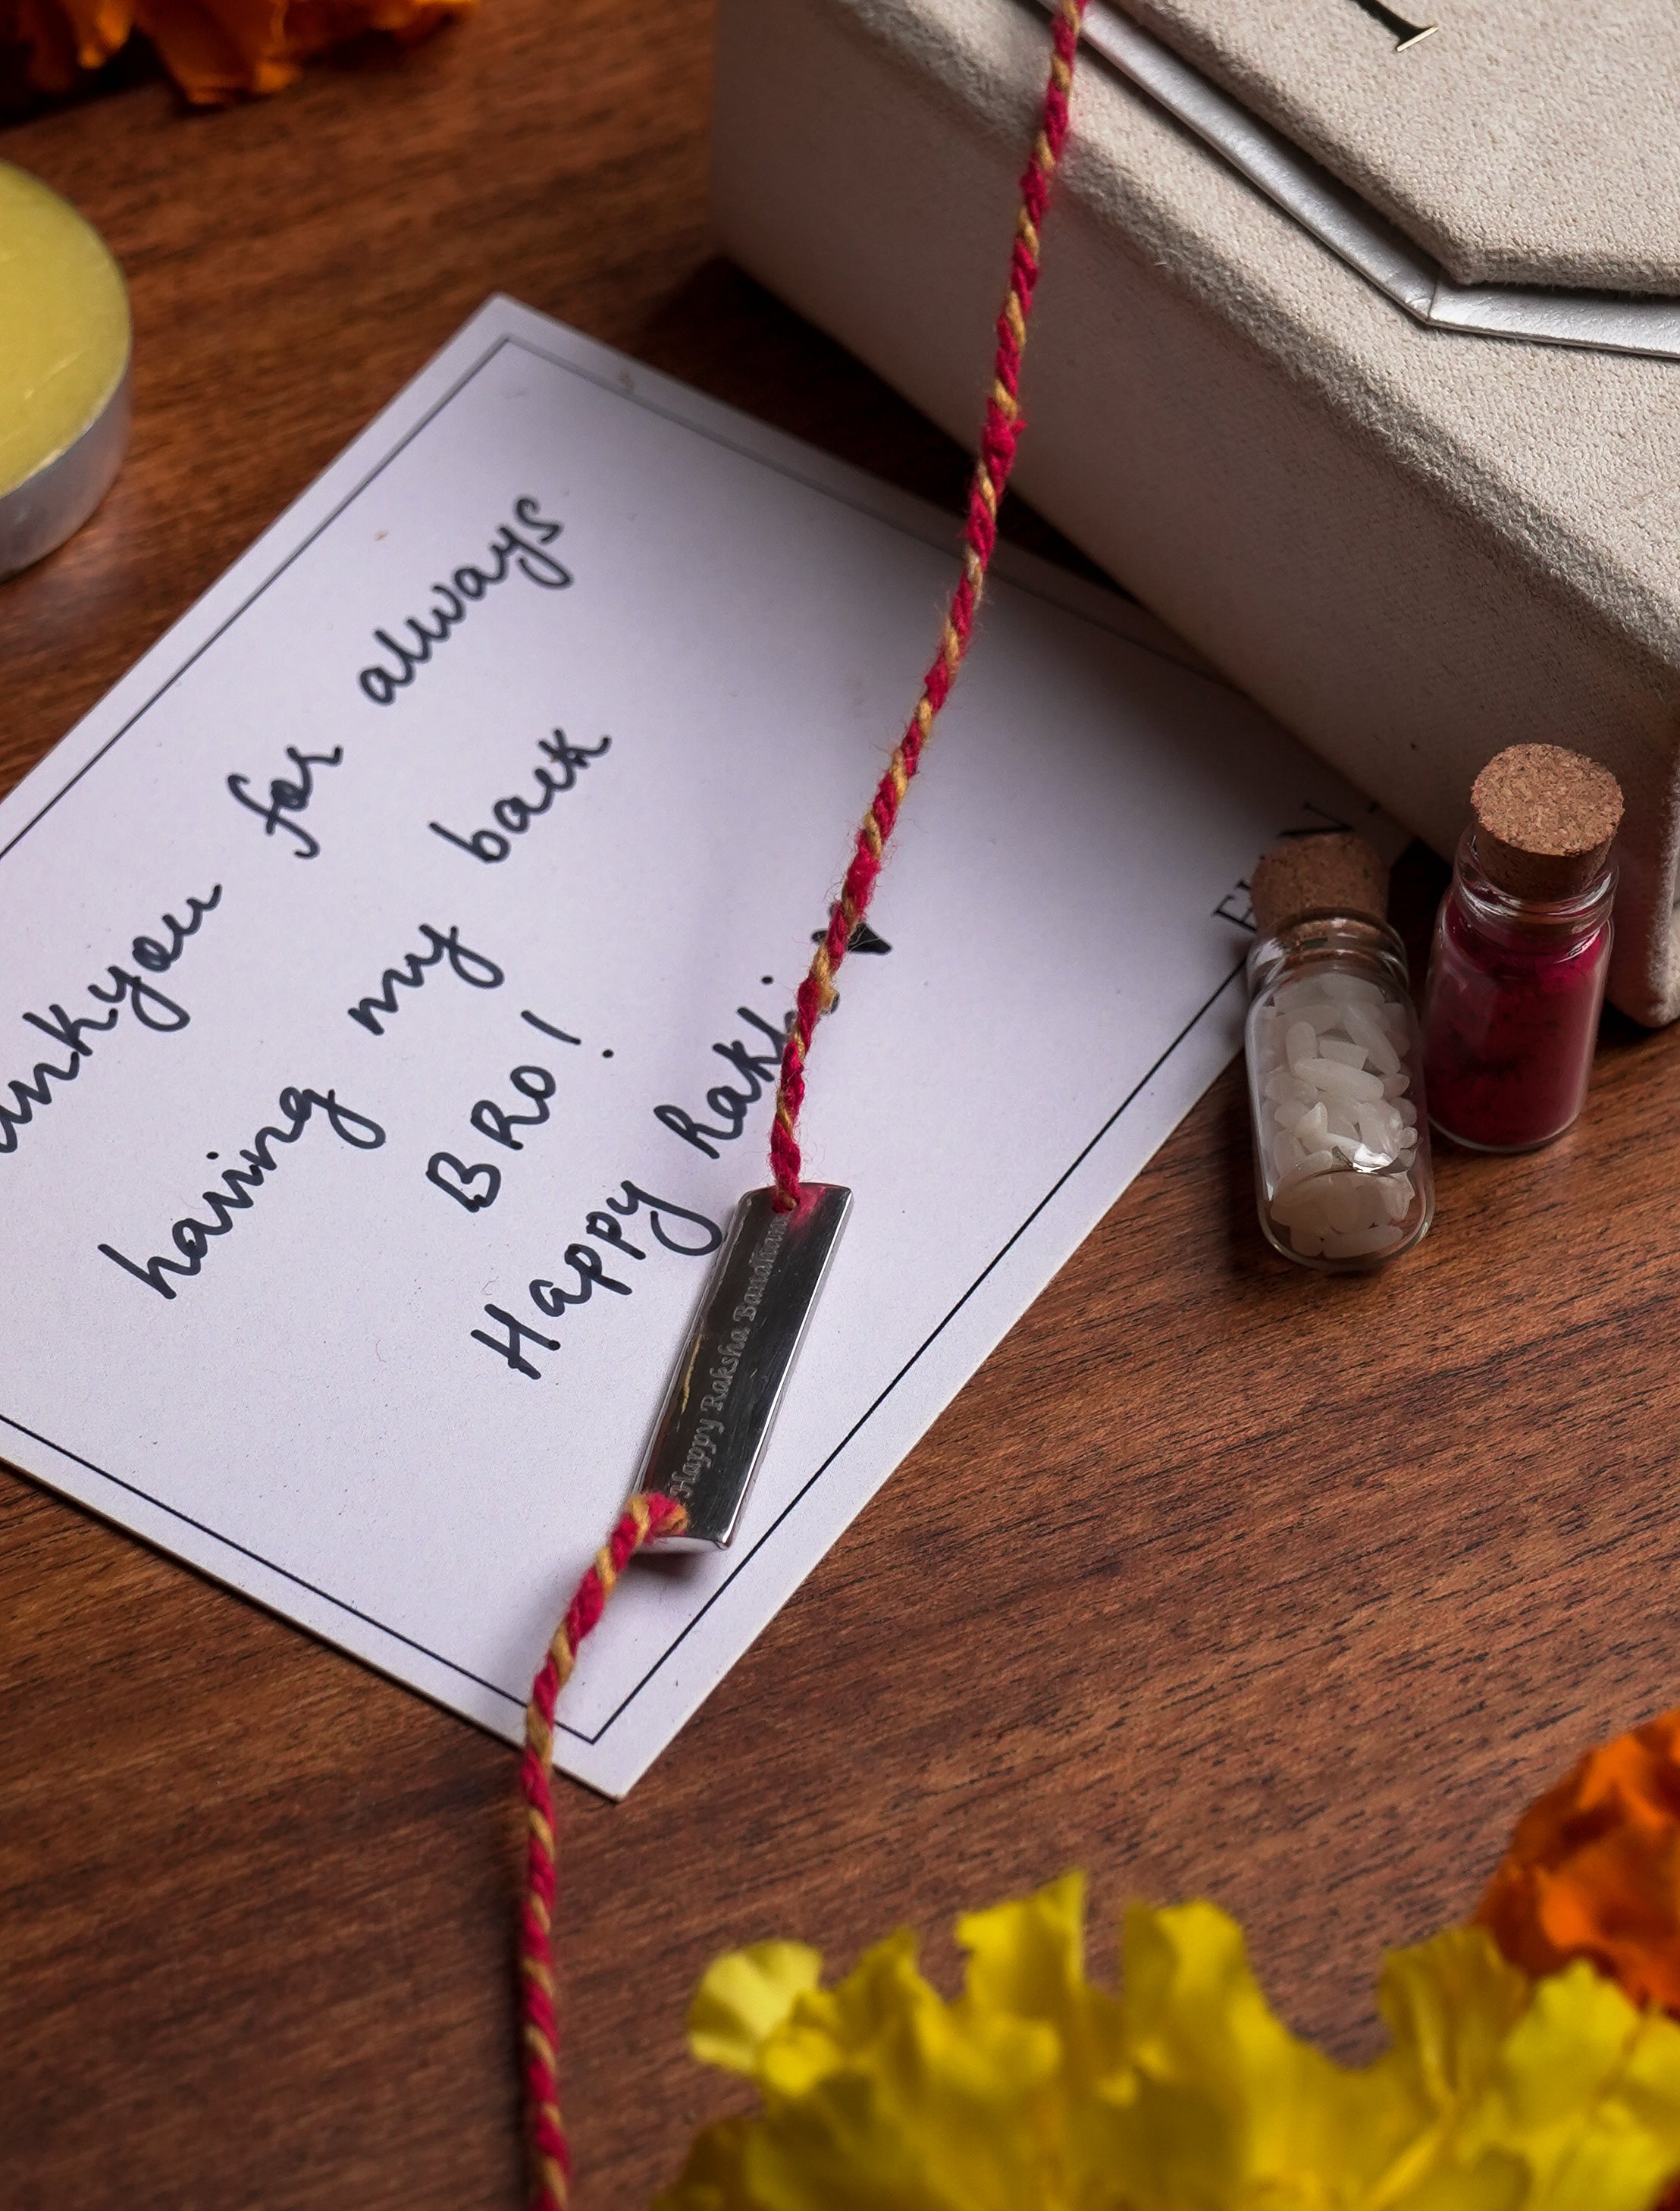 ankyou for always
having my back
BRO!
Happy Rakhi
Happy Raksha Bandhan